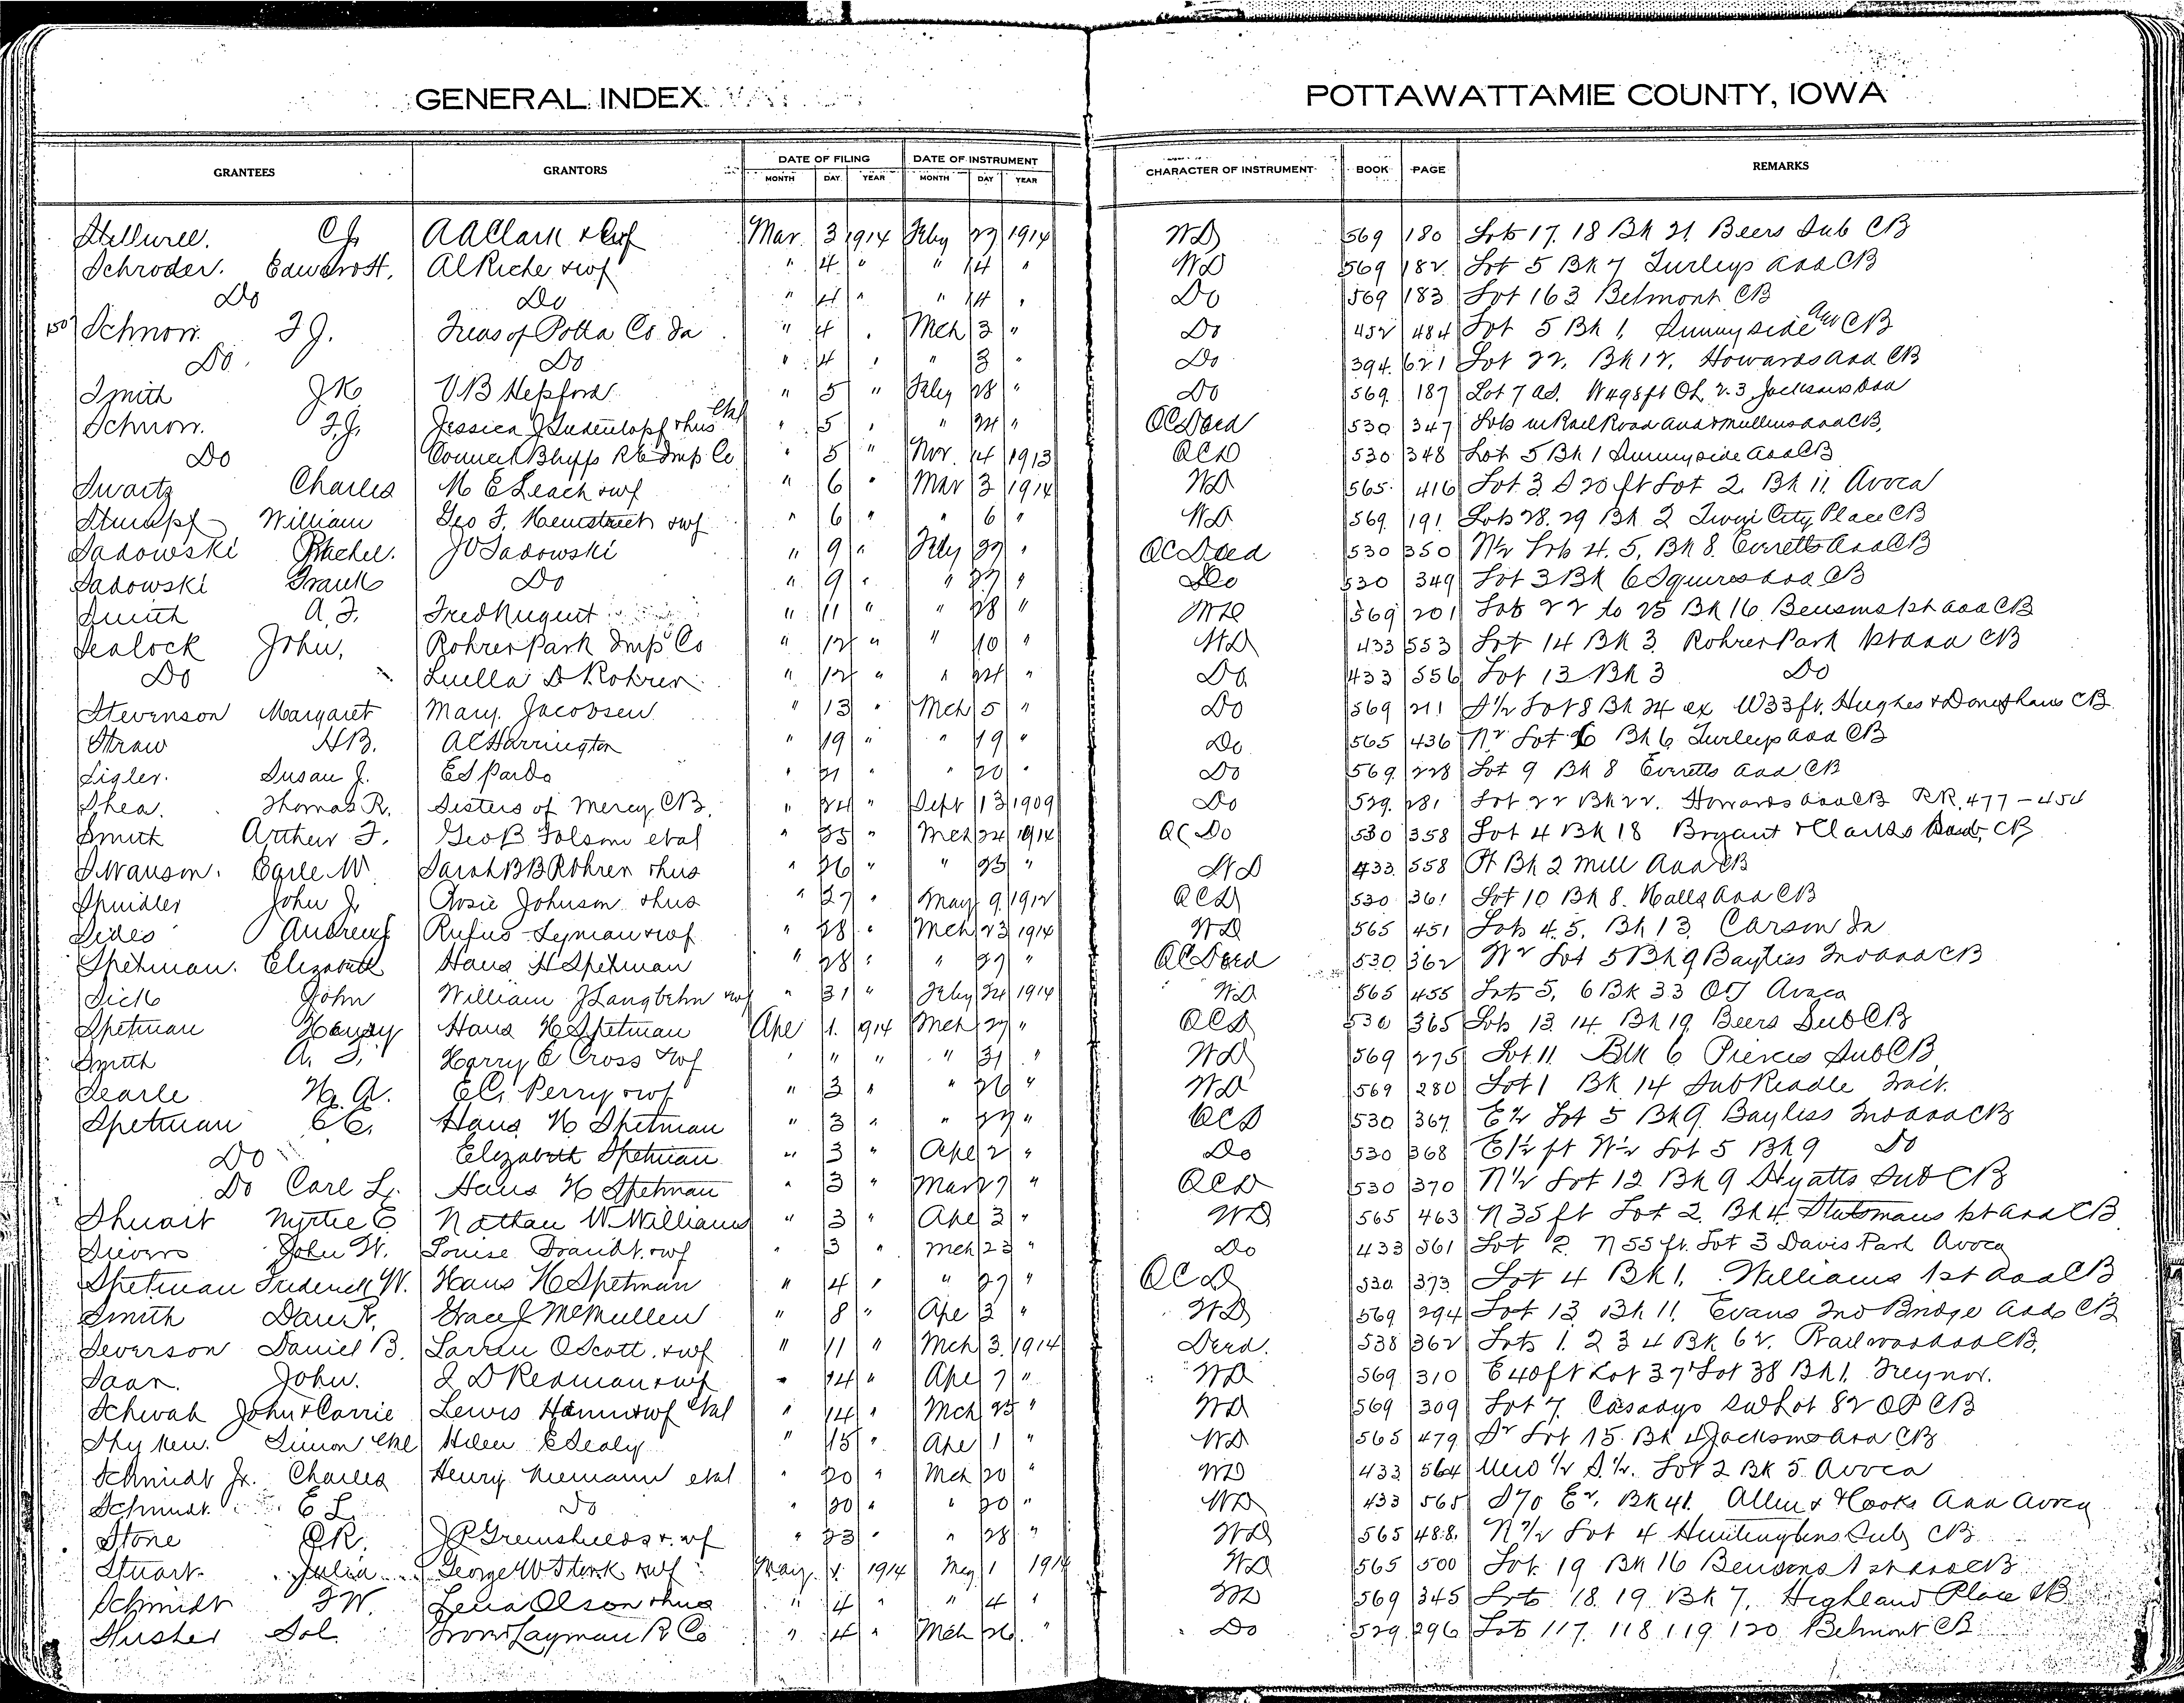 GENERAL INDEX
POTTAWATTAMIE COUNTY, IOWA
GRANTEES GRANTORS DATE OF FILING DATE OF INSTRUMENT CHARACTER OF INSTRUMENT BOOK PAGE REMARKS
MONTH DAY YEAR MONTH DAY YEAR
C J. A A Clark & wf Mar 3 1914 Feby 27 1914 WD 569 180 Lots 17. 18 Bk 21. Beers Sub CB
Schroder. Edward H. Al Riche & wf " 4 " " 14 " WD 569 182 Lot 5 Bk 7 Turleys Add CB
Do Do " 4 " " 14 " Do 569 183 Lot 163 Belmont CB
150 Schnorr. F J. Treas of Potta Co Ia " 4 " Mch 3 " Do 452 484 Lot 5 Bk 1, Sunnyside Add CB
Do Do " 4 " " 3 " Do 394 621 Lot 22. Bk 12, Howards Add CB
Smith J K V B Hepford " 5 " Feby 28 " Do 569. 187 Lot 7 W 498 ft Jacksons Add
Schnorr. F. J. Jessica J & hus etal " 5 " " 24 " QC Deed 530 347 Lots in Rail Road Add & Mullins Add CB.
Do Council Bluffs RE Imp Co " 5 " Nov. 14 1913 QCD 530 348 Lot 5 Bk 1 Sunnyside Add CB
Swartz Charles M E Leach & wf " 6 " Mar 3 1914 WD 565 416 Lot 3 S 20 ft Lot 2. Bk 11. Avoca
Stumpf William Geo F. Hemstreet & wf " 6 " " 6 " WD 569. 191 Lots 28. 29 Bk 2 Twin City Place CB
Sadowski Rachel. J V Sadowski " 9 " Feby 27 " QC Deed 530 350 N½ Lots 4. 5, Bk 8. Everetts Add CB
Sadowski Frank Do " 9 " " 27 " Do 530 349 Lot 3 Bk 6 Squires Add CB
Smith A. F. Fred Nugent " 11 " " 28 " WD 569 201 Lots 22 to 25 Bk 16 Bensons 1st Add CB
Sealock John, Rohrer Park Imp Co " 12 " " 10 " WD 433 553 Lot 14 Bk 3. Rohrer Park 1st Add CB
Do Luella D Rohrer " 12 " " 24 " Do 433 556 Lot 13 Bk 3 Do
Stevenson Margaret Mary Jacobsen " 13 " Mch 5 " Do 569 211 S½ Lot 8 Bk 24 ex W 33 ft. Hughes & Donephans CB
Straw H B. A C Harrington " 19 " " 19 " Do 565 436 N½ Lot 6 Bk 6 Turleys Add CB
Sigler. Susan J. E S Pardo " 21 " " 20 " Do 569. 228 Lot 9 Bk 8 Everetts Add CB
Shea. Thomas R. Sisters of Mercy CB. " 24 " Sept 13 1909 Do 529. 281 Lot 22 Bk 22. Howards Add CB RR. 477-454
Smith Arthur F. Geo B Folsom etal " 25 " Mch 24 1914 QC Do 530 358 Lot 4 Bk 18 Bryant & Clarks CB
Swanson. Earle W. Sarah B B Rohrer & hus " 26 " " 25 " WD 433. 558 Pt Bk 2 Mill Add CB
Spindler John J. Rosie Johnson & hus " 27 " May 9 1912 QCD 530 361 Lot 10 Bk 8. Halls Add CB
Sides Andrew J Rufus Lyman & wf " 28 " Mch 23 1914 WD 565 451 Lots 4. 5. Bk 13. Carson Ia
Spetman. Elizabeth Hans H Spetman " 28 " " 27 " QC Deed 530 362 W½ Lot 5 Bk 9 Bayliss 2nd Add CB
Sick John William J Langbehn & wf " 31 " Feby 24 1914 WD 565 455 Lots 5, 6 Bk 33 OT Avoca
Spetman Henry Hans H Spetman Apr 1. 1914 Mch 27 " QCD 530 365 Lots 13. 14. Bk 19. Beers Sub CB
Smith A. F. Harry E Cross & wf " " " " 31 " WD 569 275 Lot 11. Blk 6 Pierces Sub CB
Searle H. A. E C. Perry & wf " 3 " " 26 " WD 569 280 Lot 1 Bk 14 Sub Riddle Tract.
Spetman C C. Hans H. Spetman " 3 " " 27 " QCD 530 367 E½ Lot 5 Bk 9. Bayliss 2nd Add CB
Do Elizabeth Spetman " 3 " Apr 2 " Do 530 368 E 1½ ft W½ Lot 5 Bk 9 Do
Do Carl L. Hans H Spetman " 3 " Mar 27 " QCD 530 370 N½ Lot 12 Bk 9 Hyatts Sub CB
Shuart Myrtie E Nathan W Williams " 3 " Apr 3 " WD 565 463 N 35 ft Lot 2. Bk 4. Stutsmans 1st Add CB
Sievers John W. Louise Brandt & wf " 3 " Mch 23 " Do 433 561 Lot 2. N 55 ft. Lot 3 Davis Park Avoca
Spetman Frederick W. Hans H Spetman " 4 " " 27 " QCD 530. 373 Lot 4 Bk 1. Williams 1st Add CB
Smith Dan R. Grace J McMullen " 8 " Apr 3 " WD 569 294 Lot 13 Bk 11. Evans 2nd Bridge Add CB
Severson Daniel B. Larsen O Scott & wf " 11 " Mch 3. 1914 Deed. 538 362 Lots 1. 2 3 4 Bk 62. Railroad Add CB.
Saar. John. I D Redman & wf " 14 " Apr 7 " WD 569 310 E 40 ft Lot 37 Lot 38 Bk 1. Treynor.
Schwab John & Carrie Lewis Hamm & wf etal " 14 " Mch 25 " WD 569 309 Lot 7. Cassadys Sub Lot 82 OP CB
Simon etal Helen E Sealy " 15 " Apr 1 " WD 565 479 S½ Lot 15. Bk 4 Jacksons Add CB
Schmidt Jr. Charles Henry Niemann etal " 20 " Mch 20 " WD 433 564 Und ½ S.½. Lot 2 Bk 5. Avoca
Schmidt. E L. Do " 20 " " 20 " WD 433 565 S 70 E½. Bk 41. Allen & Cooks Add Avoca
Stone C R. J P Greenshields & wf " 23 " " 28 " WD 565 488. N½ Lot 4 Huntingtons Sub CB
Stuart Julia George W Stork & wf May 1. 1914 May 1 1914 WD 565 500 Lot 19 Bk 16 Bensons 1st Add CB
Schmidt F W. Lena Olson & hus " 4 " " 4 " WD 569 345 Lots 18. 19. Bk 7. Highland Place CB
Sol. Layman R Co " 4 " Mch 26. " Do 529. 296 Lots 117. 118 119 120 Belmont CB